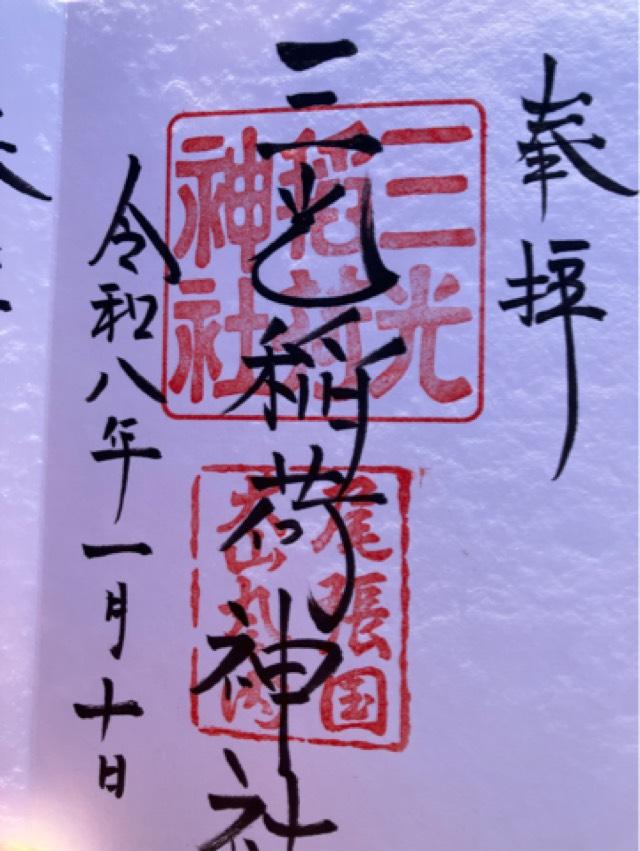 奉拝
三光稲荷神社
令和八年一月十日
三光
稲荷
神社
尾張国
犬山丸之内